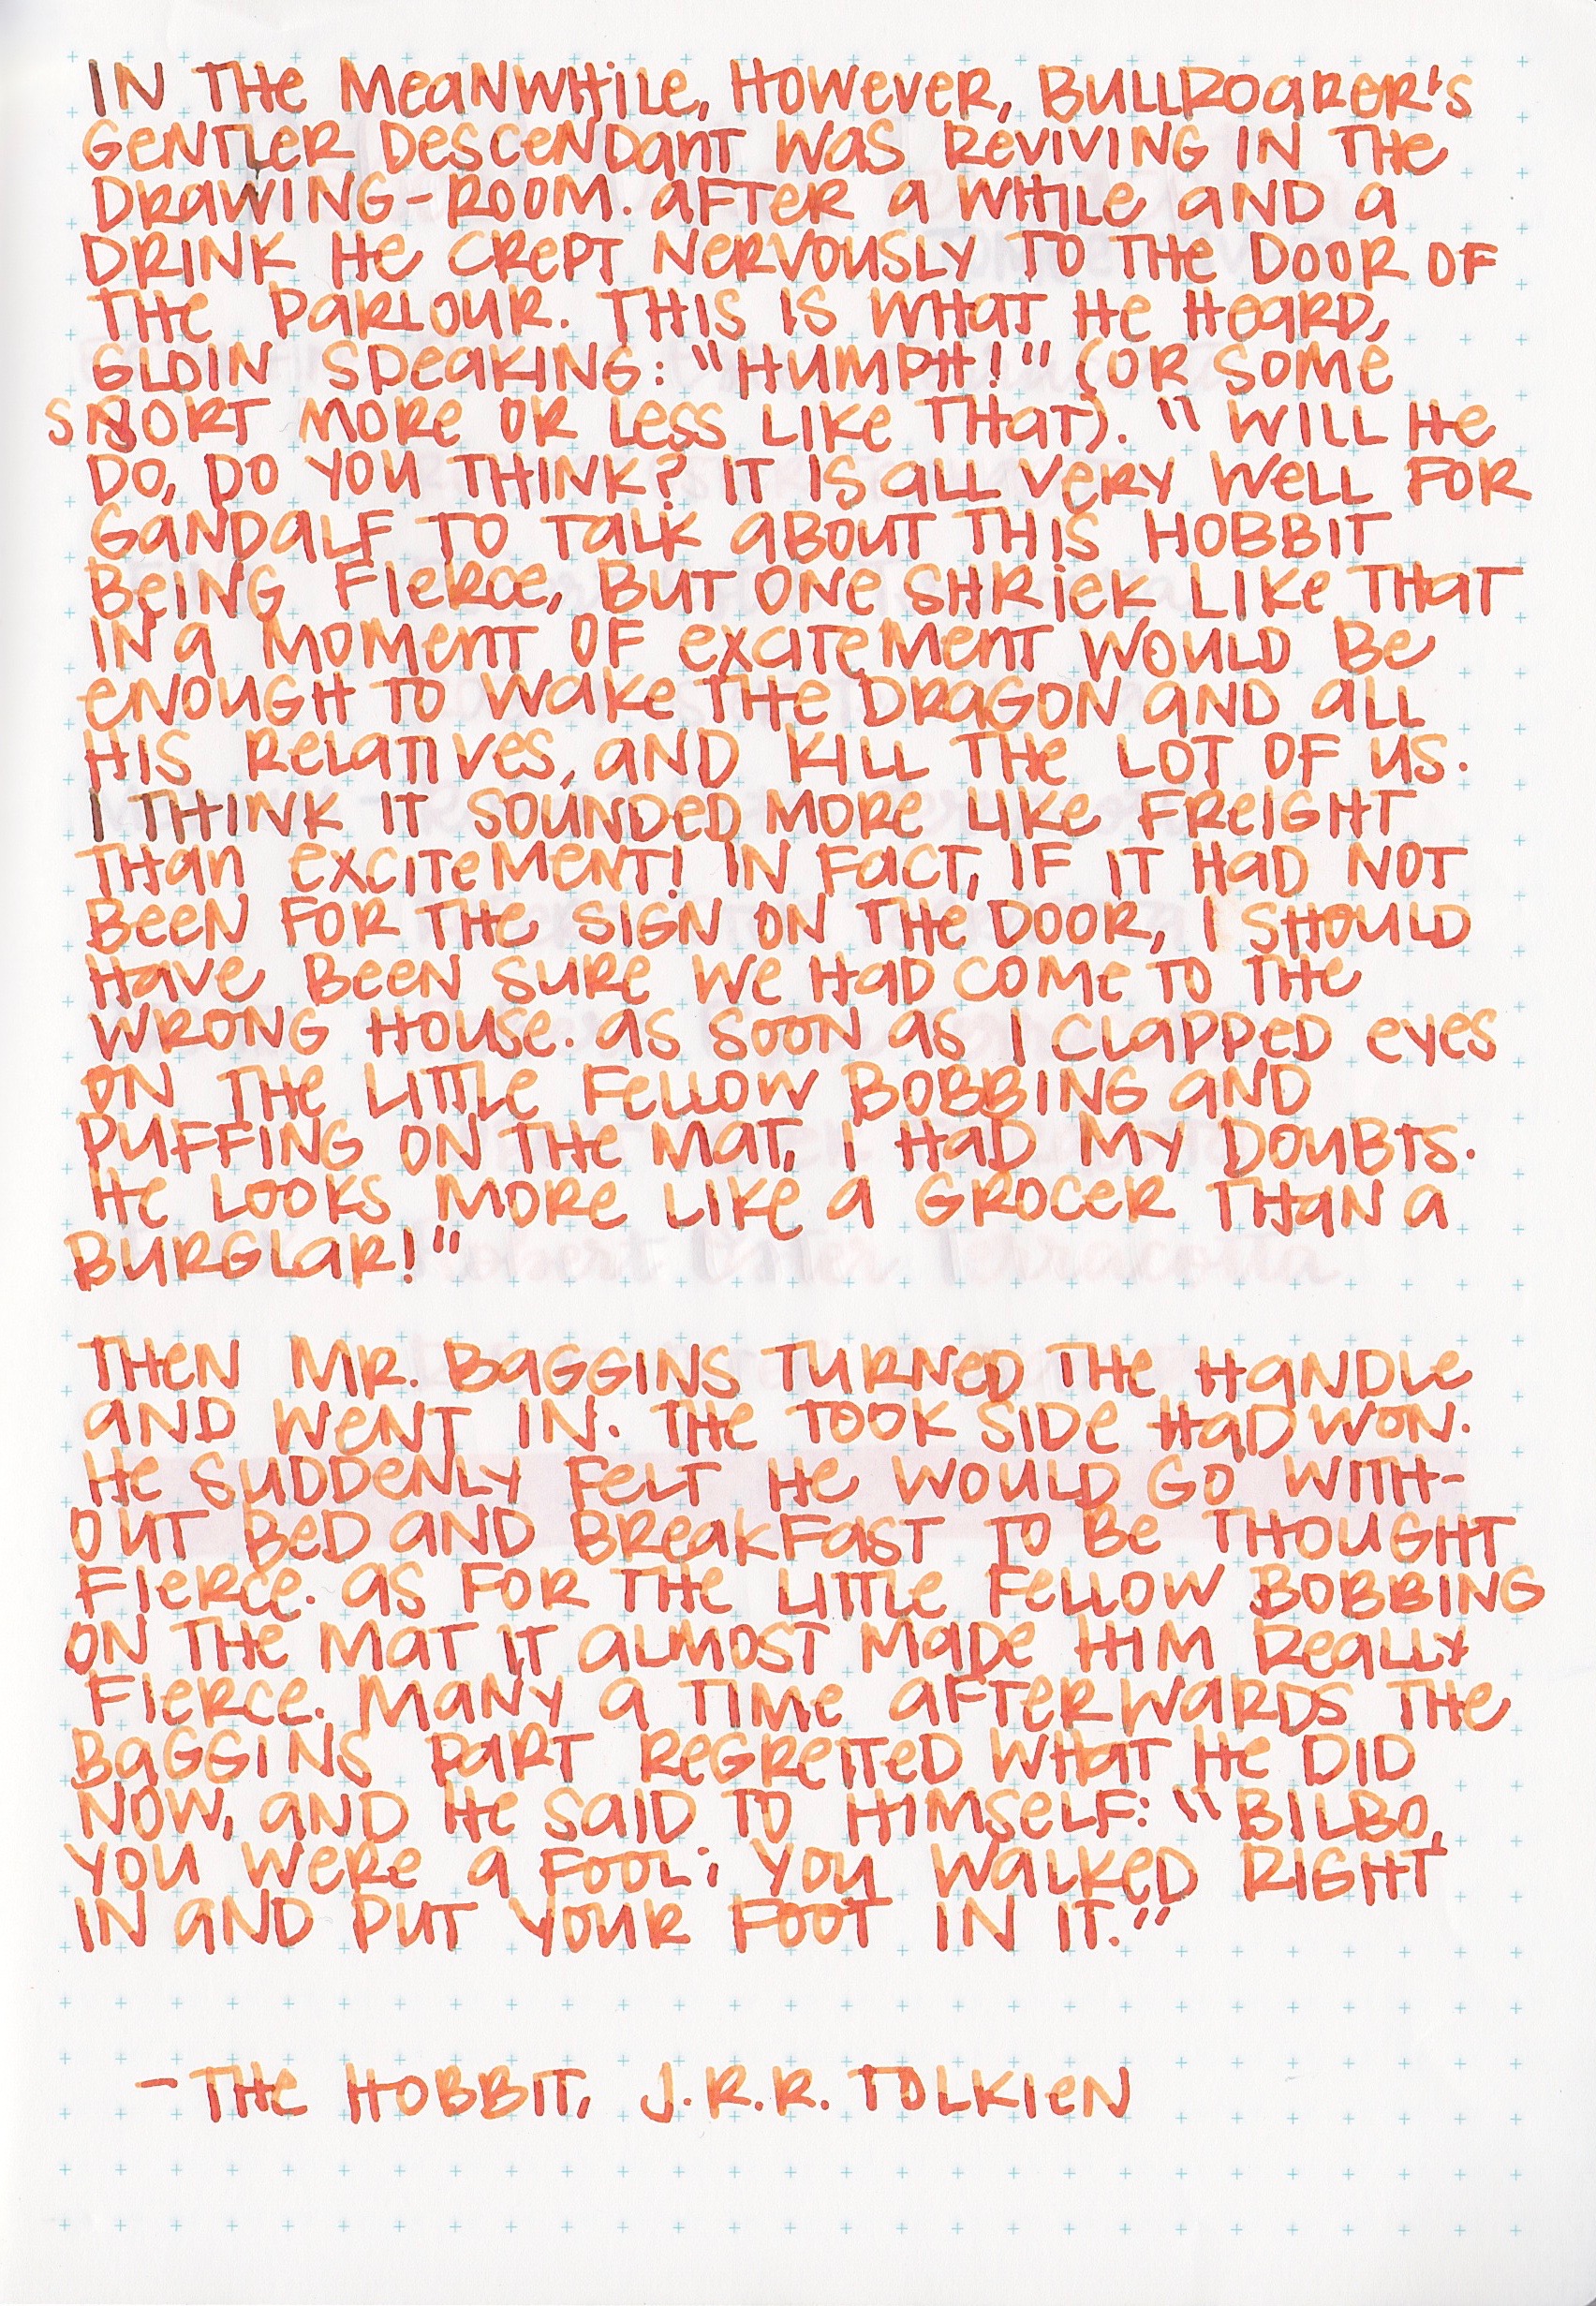 IN THE MEANWHILE, HOWEVER, BULLROARER'S
GENTLER DESCENDANT WAS REVIVING IN THE
DRAWING-ROOM. AFTER A WHILE AND A
DRINK HE CREPT NERVOUSLY TO THE DOOR OF
THE PARLOUR. THIS IS WHAT HE HEARD,
GLOIN SPEAKING: "HUMPH!" (OR SOME
SNORT MORE OR LESS LIKE THAT). "WILL HE
DO, DO YOU THINK? IT IS ALL VERY WELL FOR
GANDALF TO TALK ABOUT THIS HOBBIT
BEING FIERCE, BUT ONE SHRIEK LIKE THAT
IN A MOMENT OF EXCITEMENT WOULD BE
ENOUGH TO WAKE THE DRAGON AND ALL
HIS RELATIVES, AND KILL THE LOT OF US.
I THINK IT SOUNDED MORE LIKE FREIGHT
THAN EXCITEMENT! IN FACT, IF IT HAD NOT
BEEN FOR THE SIGN ON THE DOOR, I SHOULD
HAVE BEEN SURE WE HAD COME TO THE
WRONG HOUSE. AS SOON AS I CLAPPED EYES
ON THE LITTLE FELLOW BOBBING AND
PUFFING ON THE MAT, I HAD MY DOUBTS.
HE LOOKS MORE LIKE A GROCER THAN A
BURGLAR!"
THEN MR. BAGGINS TURNED THE HANDLE
AND WENT IN. THE TOOK SIDE HAD WON.
HE SUDDENLY FELT HE WOULD GO WITH-
OUT BED AND BREAKFAST TO BE THOUGHT
FIERCE. AS FOR THE LITTLE FELLOW BOBBING
ON THE MAT IT ALMOST MADE HIM REALLY
FIERCE. MANY A TIME AFTERWARDS THE
BAGGINS PART REGRETTED WHAT HE DID
NOW, AND HE SAID TO HIMSELF: "BILBO,
YOU WERE A FOOL; YOU WALKED RIGHT
IN AND PUT YOUR FOOT IN IT."
- THE HOBBIT, J.R.R. TOLKIEN